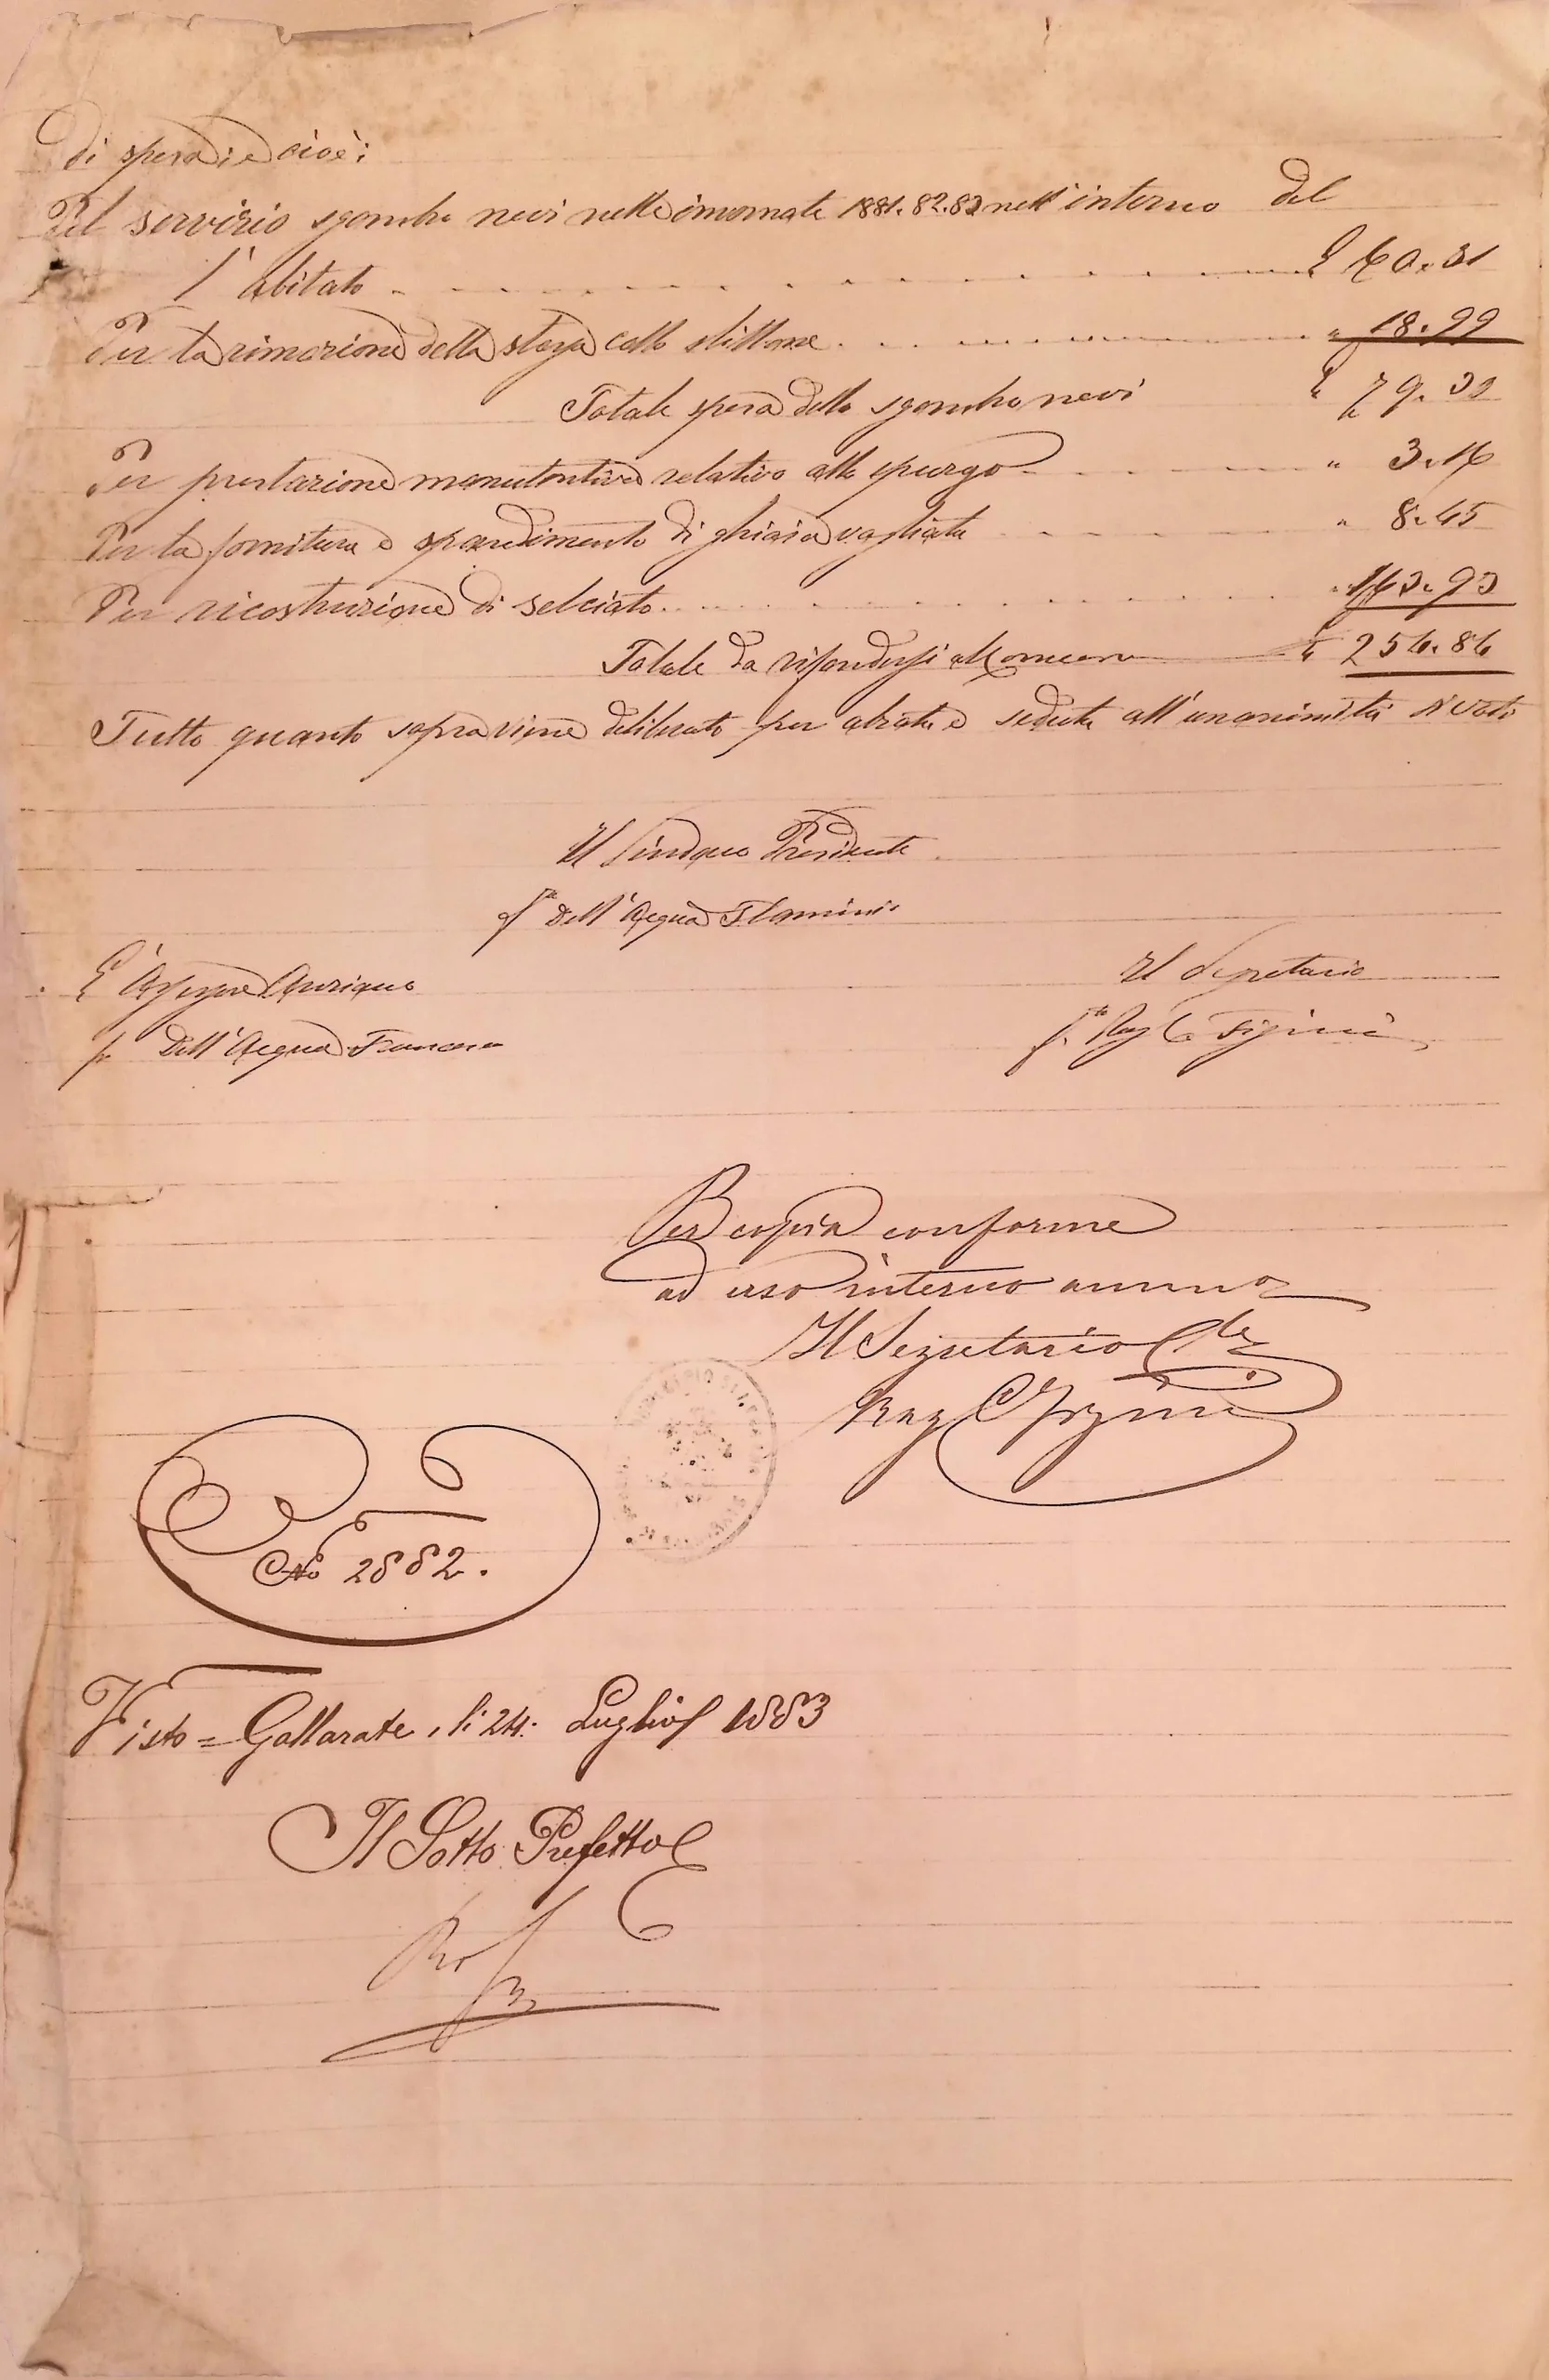 di spesa e cioè:
Pel servizio sgombro nevi nelle invernate 1881.82.83 nell'interno del
l'abitato L 60.31
Per la rimozione della stessa collo slittone " 18.99
Totale spesa dello sgombro nevi L 79.30
Per prestazione manutentive relativo allo spurgo " 3.16
Per la fornitura e spandimento di ghiaia vagliata " 8.45
Per ricostruzione di selciato " 163.93
Totale da rifondersi al Comune L 254.84
Tutto quanto sopra viene deliberato per alzata e seduta all'unanimità di voti
Il Sindaco Presidente
fto Dell'Acqua Flaminio
L'Assessore Anziano
fto Dell'Acqua Francesco
Il Segretario
fto Rag C Figini
Per copia conforme
ad uso interno ammvo
Il Segretario Cle
Rag C Figini
No 2882.
Visto = Gallarate, li 24. Luglio 1883
Il Sotto Prefetto